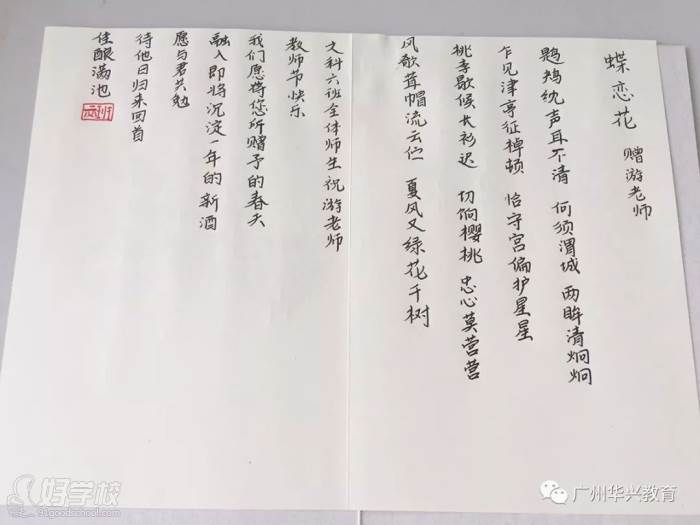 蝶恋花 赠游老师
声耳不清 何须渭城 两眸清炯炯
乍见津亭征棹顿 守宫偏护星星
桃李歇候长衫迟 切饷樱桃 忠心莫营营
风欹茸帽流云伫 夏风又绿花千树
文科六班全体师生祝游老师
教师节快乐
我们愿将您所赠予的春天
融入即将沉淀一年的新酒
愿与君共勉
待他日归来回首
佳酿满池
好学校
91goodschool.com
广州华兴教育